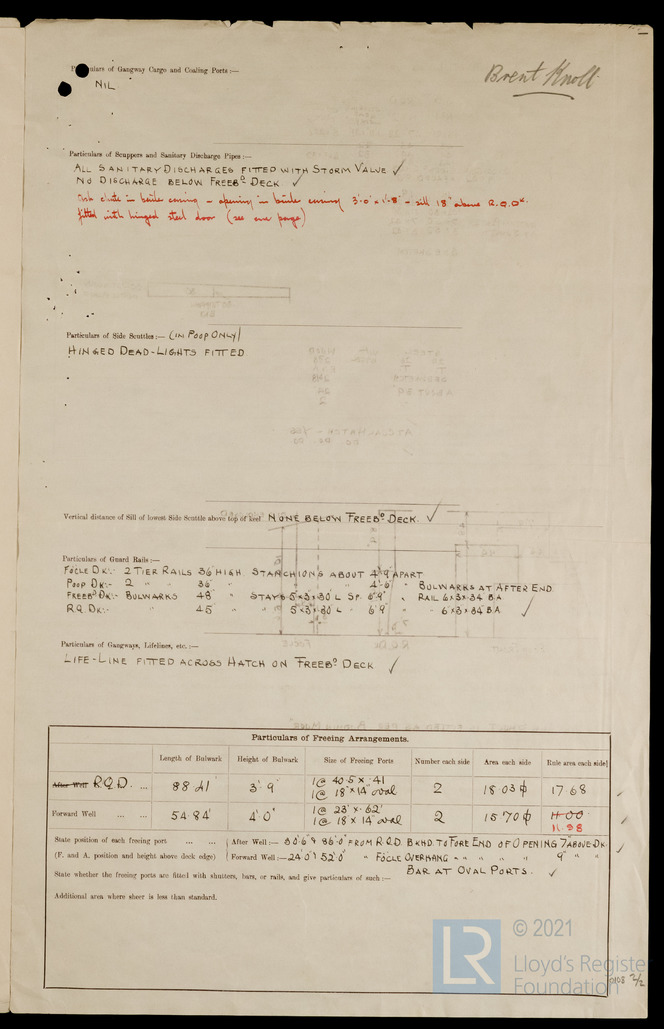 Brent Knoll
Particulars of Gangway Cargo and Coaling Ports :—
NIL
Particulars of Scuppers and Sanitary Discharge Pipes :—
ALL SANITARY DISCHARGES FITTED WITH STORM VALVE ✓
NO DISCHARGE BELOW FREEBD DECK ✓
Ash chute in boiler casing – opening in boiler casing 3'·0" x 1'·8" – sill 18" above R.Q.Dk.
fitted with hinged steel door (see one page)
Particulars of Side Scuttles :— (IN POOP ONLY)
HINGED DEAD-LIGHTS FITTED
Vertical distance of Sill of lowest Side Scuttle above top of keel NONE BELOW FREEBD DECK. ✓
Particulars of Guard Rails :—
FOCLE DK:- 2 TIER RAILS 36" HIGH STANCHIONS ABOUT 4'·9" APART
POOP DK:- 2 " " 36" " " " 4'·6" " BULWARKS AT AFTER END
FREEBD DK:- BULWARKS 48" " STAYS 5"x3"x·30" L SP. 6'9" " RAIL 6x3x·34 B.A
R.Q. DK:- " 45" " " 5"x3"x·30" L " 6'9" " " 6"x3"x·34 B.A. ✓
Particulars of Gangways, Lifelines, etc. :—
LIFE-LINE FITTED ACROSS HATCH ON FREEBD DECK ✓
Particulars of Freeing Arrangements.
Length of Bulwark Height of Bulwark Size of Freeing Ports Number each side Area each side Rule area each side
After Well R.Q.D. ... 88·41' 3'·9" 1@ 40·5 x ·41 2 18·03 ϕ 17·68
1@ 18" x 14" oval
Forward Well ... ... 54·84' 4'·0" 1@ 23' x ·62' 2 15·70 ϕ 11·00
1@ 18 x 14" oval 11·98
State position of each freeing port ... ... After Well :— 30'·6" & 86'·0" FROM R.Q.D. BKHD. TO FORE END OF OPENING 7" ABOVE DK.
(F. and A. position and height above deck edge) Forward Well :— 24'·0" & 52'·0" " FOCLE OVERHANG " " " " " 9" " "
State whether the freeing ports are fitted with shutters, bars, or rails, and give particulars of such :— BAR AT OVAL PORTS. ✓
Additional area where sheer is less than standard.
LR
© 2021
Lloyd's Register
Foundation
0108 2/2